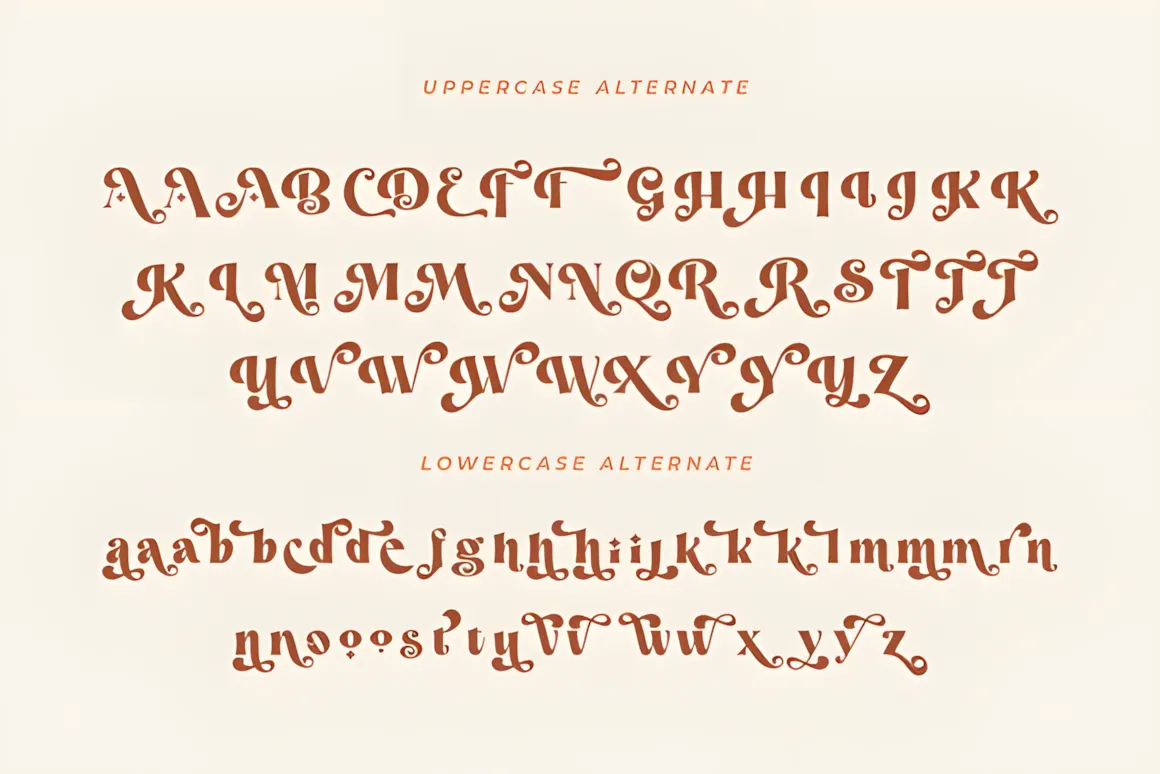 UPPERCASE ALTERNATE
AAABCDEFFGHHIIJKK
KLMMMNNQRRSTTT
UVWWWXYYYZ
LOWERCASE ALTERNATE
aaabbcddefghhhiijkkklmmmrn
nnooosttuvvwwxyyz